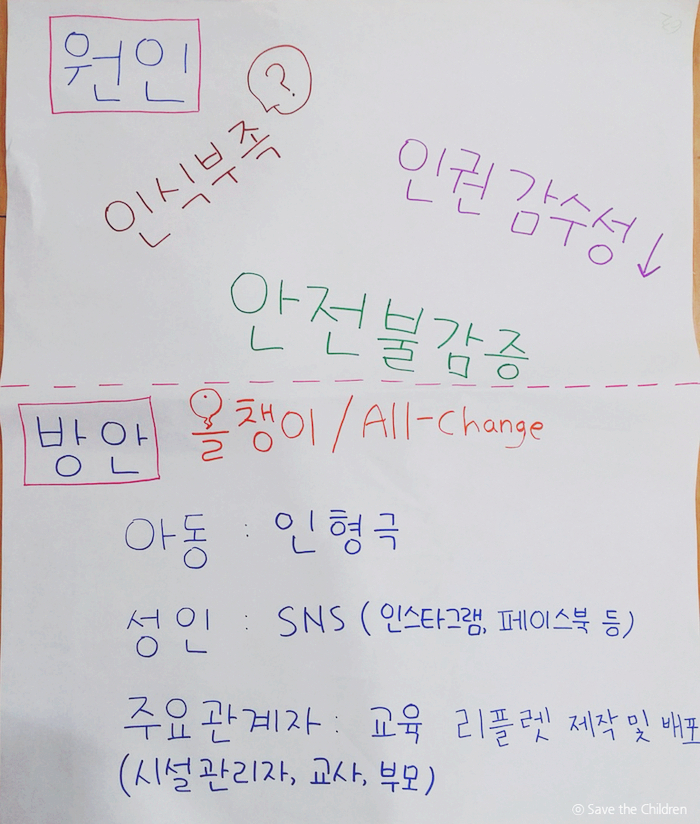 원인
?
인식부족
인권 감수성↓
안전불감증
방안
올챙이 / All-Change
아동 : 인형극
성인 : SNS (인스타그램, 페이스북 등)
주요관계자 : 교육 리플렛 제작 및 배포
(시설관리자, 교사, 부모)
ⓒ Save the Children